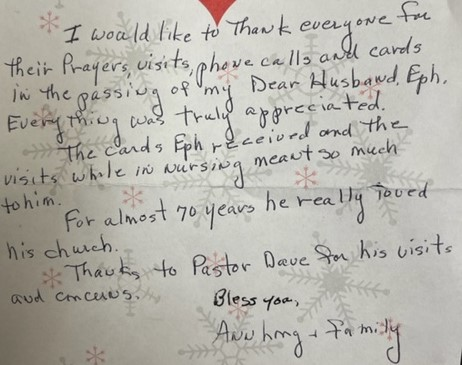 I would like to Thank everyone for
their Prayers, visits, phone calls and cards
in the passing of my Dear Husband, Eph.
Everything was truly appreciated.
The cards Eph received and the
visits while in nursing meant so much
to him.
For almost 70 years he really loved
his church.
Thanks to Pastor Dave for his visits
and concerns.
Bless you,
Ann + Family